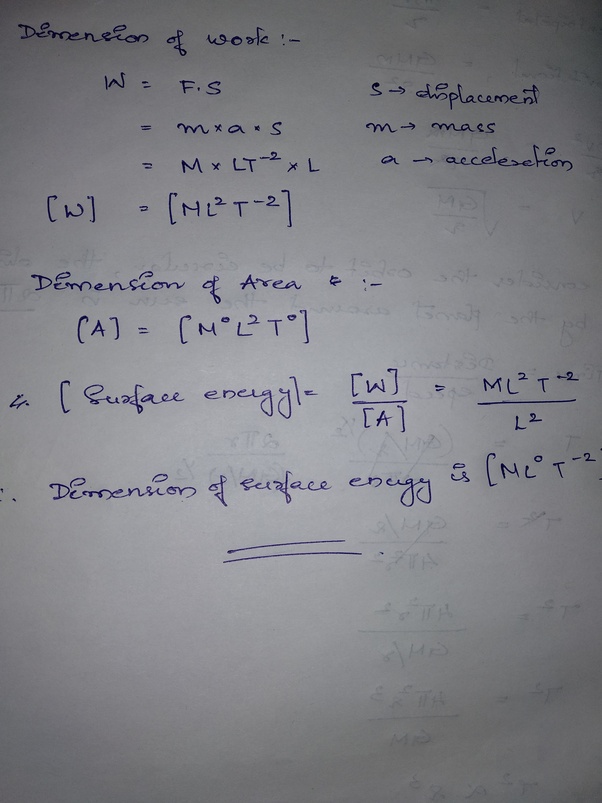 Dimension of work :-
W = F.S s → displacement
= m×a×s m → mass
= M × LT⁻² × L a → acceleration
[W] = [ML²T⁻²]
Dimension of Area :-
[A] = [M⁰L²T⁰]
[Surface energy] = [W]/[A] = ML²T⁻²/L²
Dimension of surface energy is [ML⁰T⁻²]